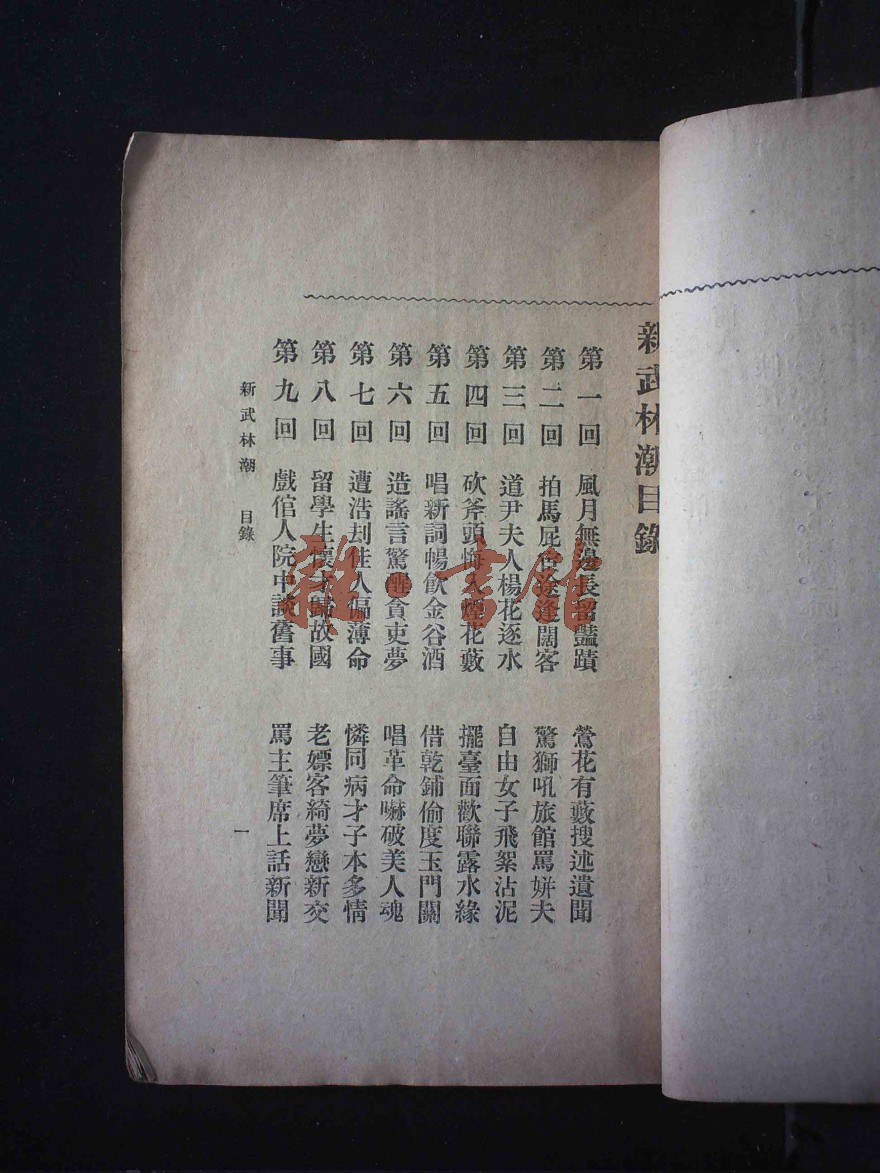 新武林潮目錄
第一回 風月無邊長留豔蹟 鶯花有藪搜述遺聞
第二回 拍馬屁途逢闊客 驚獅吼旅館罵姘夫
第三回 道尹夫人楊花逐水 自由女子飛絮沾泥
第四回 砍斧頭悔入煙花藪 擺臺面歡聯露水緣
第五回 唱新詞暢飲金谷酒 借乾鋪偷度玉門關
第六回 造謠言驚醒貪吏夢 唱革命嚇破美人魂
第七回 遭浩刦佳人偏薄命 憐同病才子本多情
第八回 留學生懷才歸故國 老嫖客綺夢戀新交
第九回 戲倌人院中談舊事 罵主筆席上話新聞
新武林潮 目錄 一
雜·書館